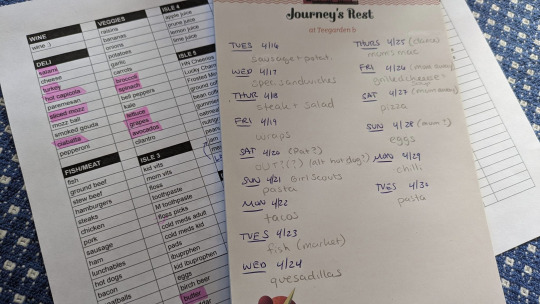 Journey's Rest
at Teegarden b
TUES 4/16
sausage + potat.
WED 4/17
spec. sandwiches
THUR 4/18
steak + salad
FRI 4/19
wraps
SAT 4/20 (Pat?)
OUT?(?) (alt hot dog?)
SUN 4/21 Girl Scouts
pasta
MON 4/22
tacos
TUES 4/23
fish (market)
WED 4/24
quesadillas
THURS 4/25
FRI 4/26
grilled cheese
SAT 4/27
pizza
SUN 4/28 (mom?)
eggs
MON 4/29
chili
TUES 4/30
pasta
WINE
wine :)
DELI
salami
cheese
turkey
hot capicola
paremesan
sliced mozz
mozz ball
smoked gouda
ciabatta
pepperoni
FISH/MEAT
fish
ground beef
stew beef
hamburgers
steaks
chicken
pork
sausage
ham
lunchables
hot dogs
bacon
meatballs
VEGGIES
raisins
bananas
onions
potatoes
garlic
carrots
broccoli
spinach
bell peppers
kale
lettuce
grapes
avocados
cilantro
ISLE 3
kid vits
mom vits
floss
toothpaste
M toothpaste
floss picks
cold meds adult
cold meds kid
pads
ibuprphen
kid ibuprophen
eggs
birch beer
butter
ISLE 4
apple juice
prune juice
lemon juice
lime juice
ISLE 5
HN Cheerios
Lucky Charms
Frosted